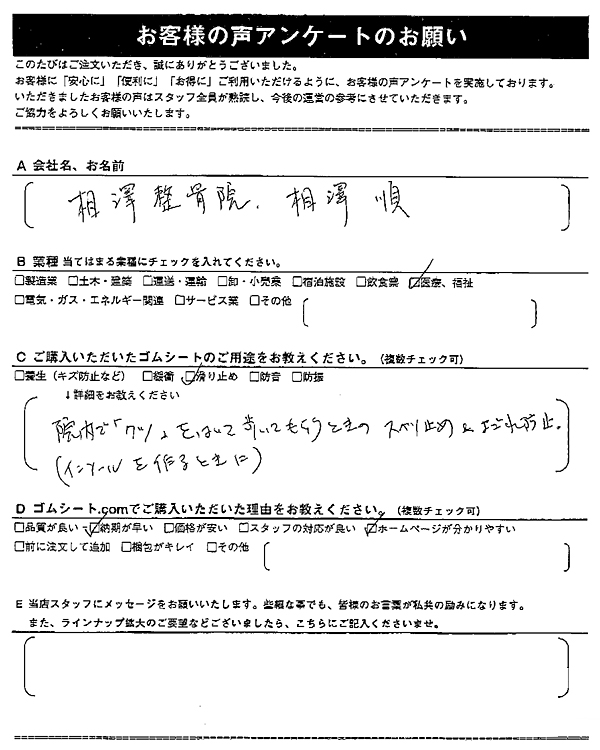 お客様の声アンケートのお願い
このたびはご注文いただき、誠にありがとうございました。
お客様に「安心に」「便利に」「お得に」ご利用いただけるように、お客様の声アンケートを実施しております。
いただきましたお客様の声はスタッフ全員が熟読し、今後の運営の参考にさせていただきます。
ご協力をよろしくお願いいたします。
A 会社名、お名前
相澤整骨院、相澤 順
B 業種 当てはまる業種にチェックを入れてください。
□製造業 □土木・建築 □運送・運輸 □卸・小売業 □宿泊施設 □飲食業 ☑医療、福祉
□電気・ガス・エネルギー関連 □サービス業 □その他
C ご購入いただいたゴムシートのご用途をお教えください。(複数チェック可)
□養生(キズ防止など) □緩衝 ☑滑り止め □防音 □防振
↓詳細をお教えください
院内で「クツ」をはいて歩いてもらうときの スベリ止め と よごれ防止。
(インソールを作るときに)
D ゴムシート.comでご購入いただいた理由をお教えください。(複数チェック可)
□品質が良い ☑納期が早い □価格が安い □スタッフの対応が良い ☑ホームページが分かりやすい
□前に注文して追加 □梱包がキレイ □その他
E 当店スタッフにメッセージをお願いいたします。些細な事でも、皆様のお言葉が私共の励みになります。
また、ラインナップ拡大のご要望などございましたら、こちらにご記入くださいませ。